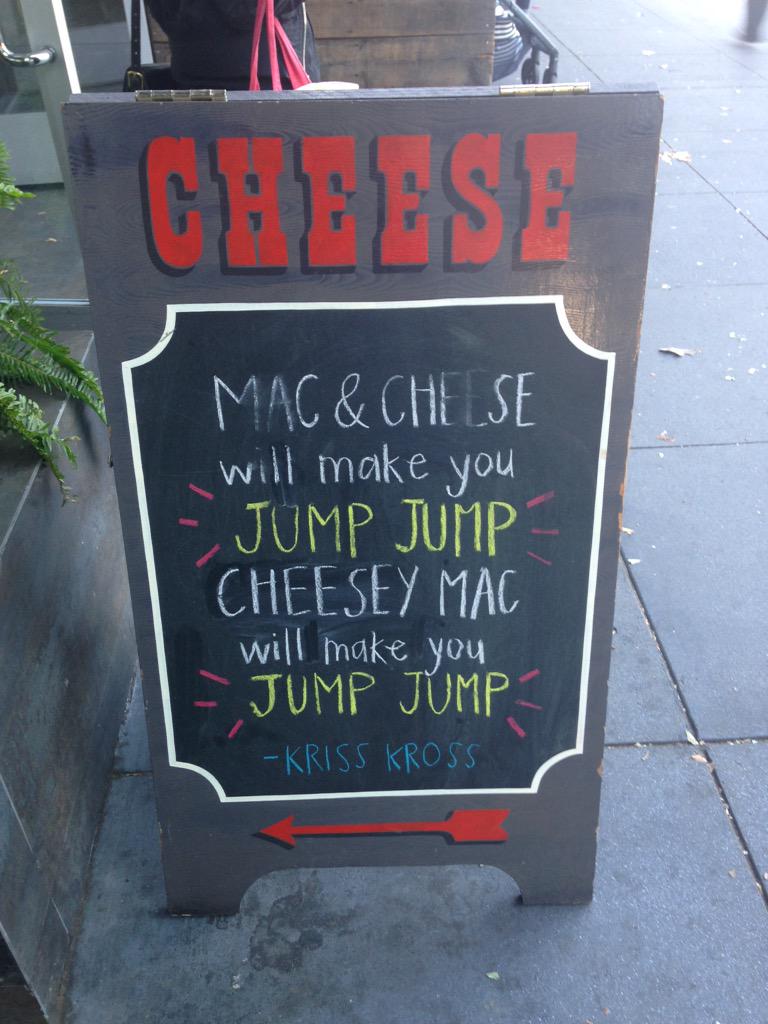 CHEESE
MAC & CHEESE
will make you
JUMP JUMP
CHEESEY MAC
will make you
JUMP JUMP
-KRISS KROSS